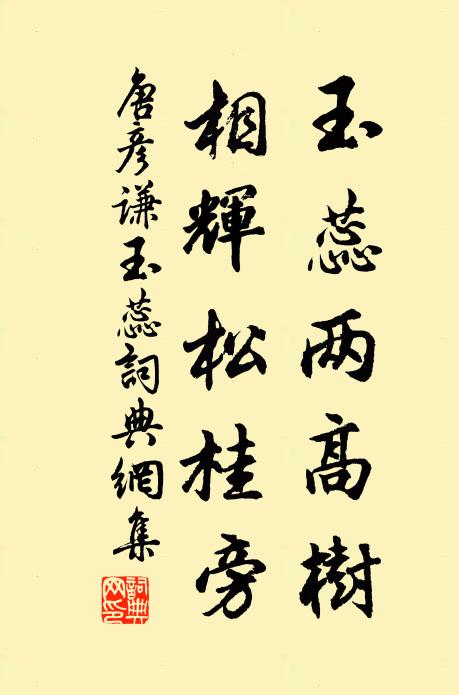 玉蕊两高樹
相輝松桂旁
唐彦谦玉蕊詞典網集
詞典网印